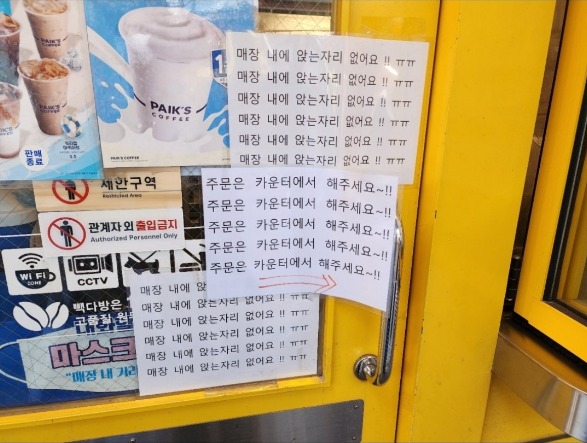 PAIK'S
COFFEE
PAIK'S
COFFEE
PAIK'S
판매
종료
PAIK'S COFFEE
매장 내에 앉는자리 없어요 !! ㅠㅠ
매장 내에 앉는자리 없어요 !! ㅠㅠ
매장 내에 앉는자리 없어요 !! ㅠㅠ
매장 내에 앉는자리 없어요 !! ㅠㅠ
매장 내에 앉는자리 없어요 !! ㅠㅠ
매장 내에 앉는자리 없어요 !! ㅠㅠ
제한구역
Restricted Area
관계자 외 출입금지
Authorized Personnel Only
주문은 카운터에서 해주세요~!!
주문은 카운터에서 해주세요~!!
주문은 카운터에서 해주세요~!!
주문은 카운터에서 해주세요~!!
주문은 카운터에서 해주세요~!!
WiFi
ZONE
CCTV
빽다방은
고품질 원두
매장 내에 앉
매장 내에 앉는자리 없어요 !! ㅠㅠ
매장 내에 앉는자리 없어요 !! ㅠㅠ
매장 내에 앉는자리 없어요 !! ㅠㅠ
매장 내에 앉는자리 없어요 !! ㅠㅠ
마스크
"매장 내 거리